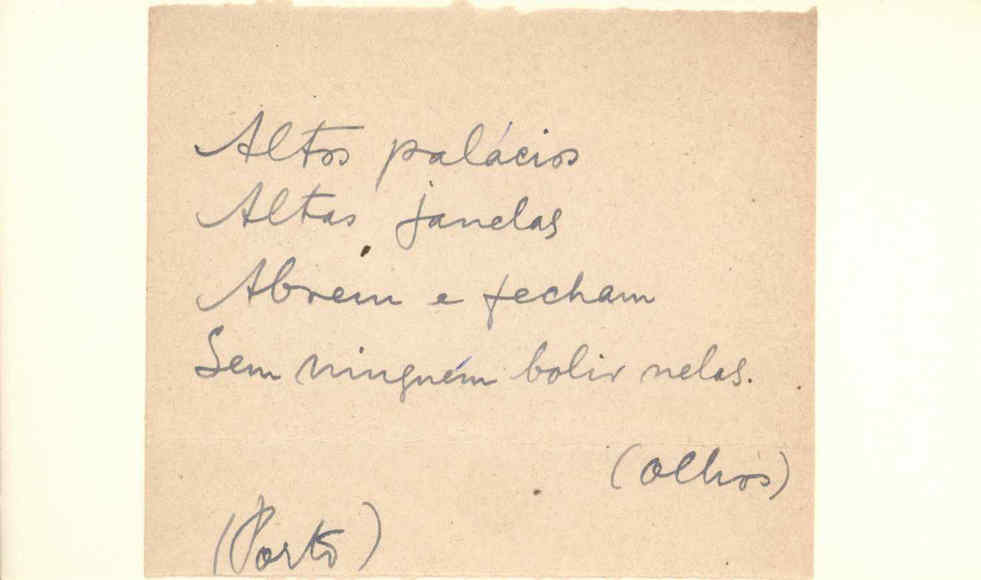 Altos palácios
Altas janelas
Abrem e fecham
Sem ninguém bolir nelas.
(olhos)
(Porto)